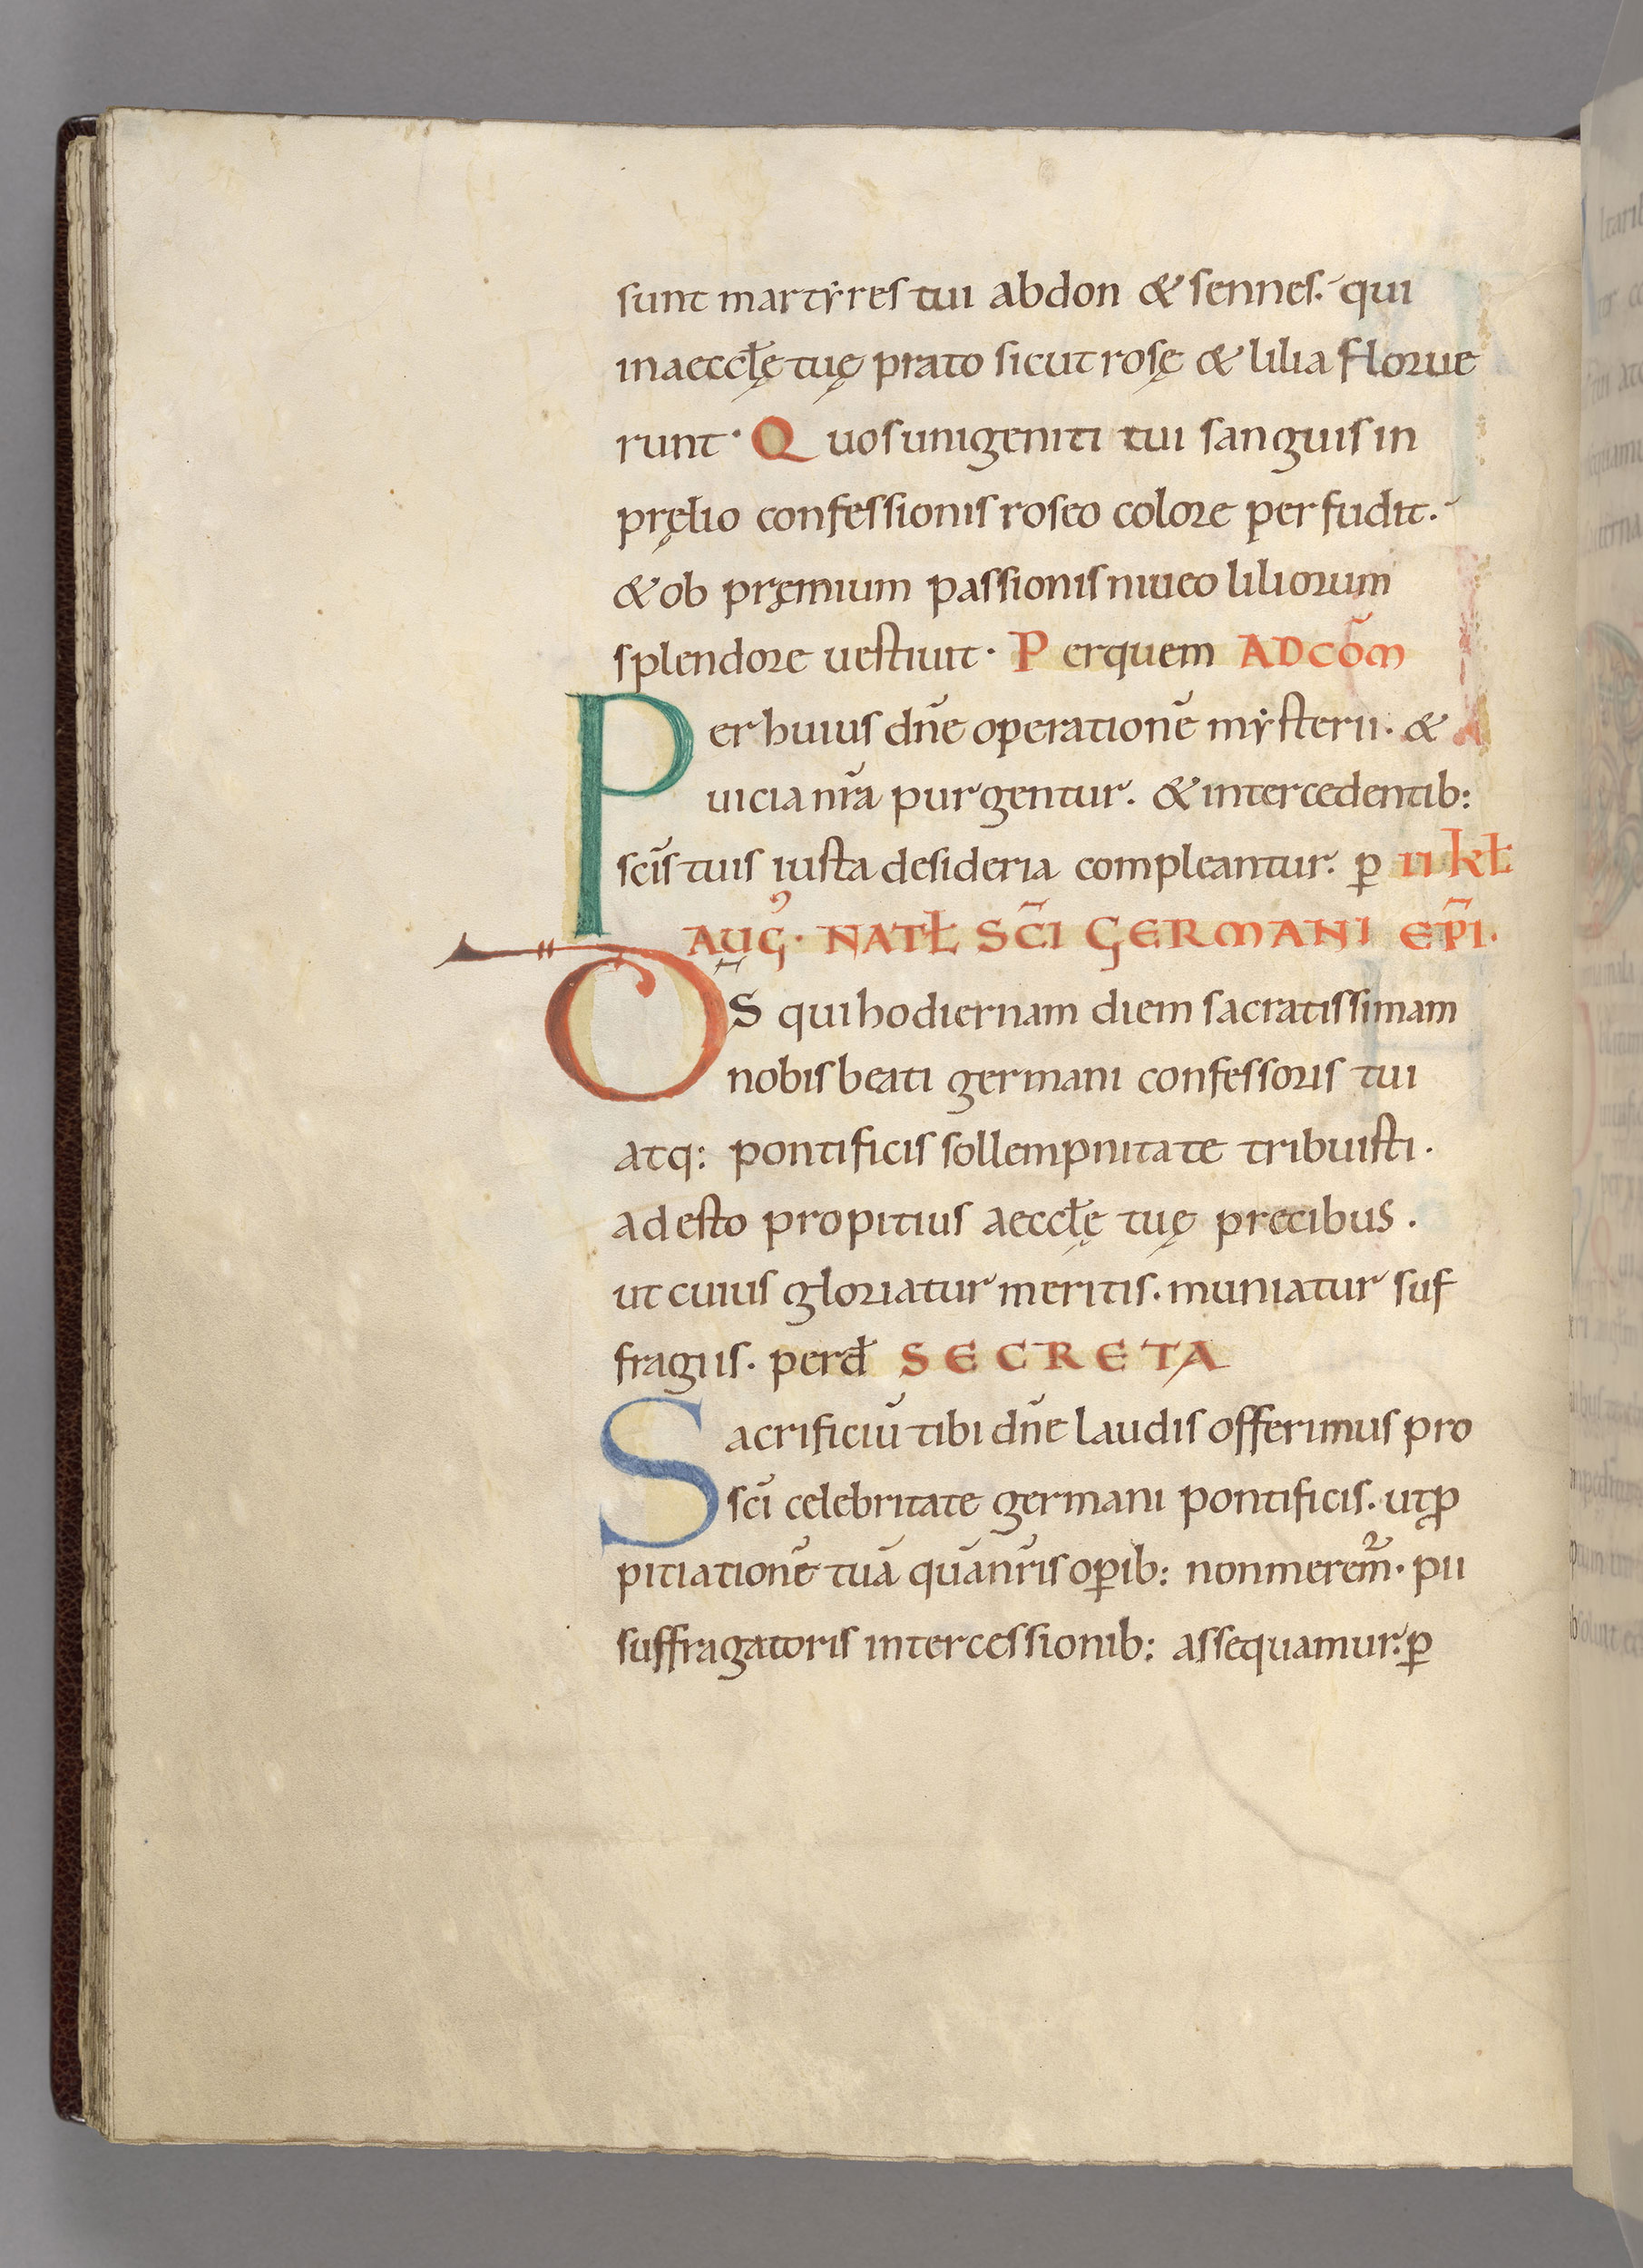 sunt martẏres tui abdon & sennes. qui
in aeccłę tuę prato sicut rosę & lilia florue
runt. Quos unigeniti tui sanguis in
pręlio confessionis roseo colore perfudit.
& ob pręmium passionis niueo liliorum
splendore uestiuit. Per quem AD COM̄
Per huius dn̄e operationē mẏsterii. &
uicia nr̄a purgentur. & intercedentib:
sc̄is tuis iusta desideria compleantur. ꝑ II KŁ
AUG̓. NATŁ SC̄I GERMANI EP̄I.
D̄S qui hodiernam diem sacratissimam
nobis beati germani confessoris tui
atq: pontificis sollempnitate tribuisti.
adesto propitius aeccłę tuę precibus.
ut cuius gloriatur meritis. muniatur suf
fragiis. per đ SECRETA
Sacrificiū tibi dn̄e laudis offerimus pro
sc̄i celebritate germani pontificis. ut ꝓ
pitiationē tuā quā nr̄is oꝑib: non meremr̄. pii
suffragatoris intercessionib: assequamur. ꝑ